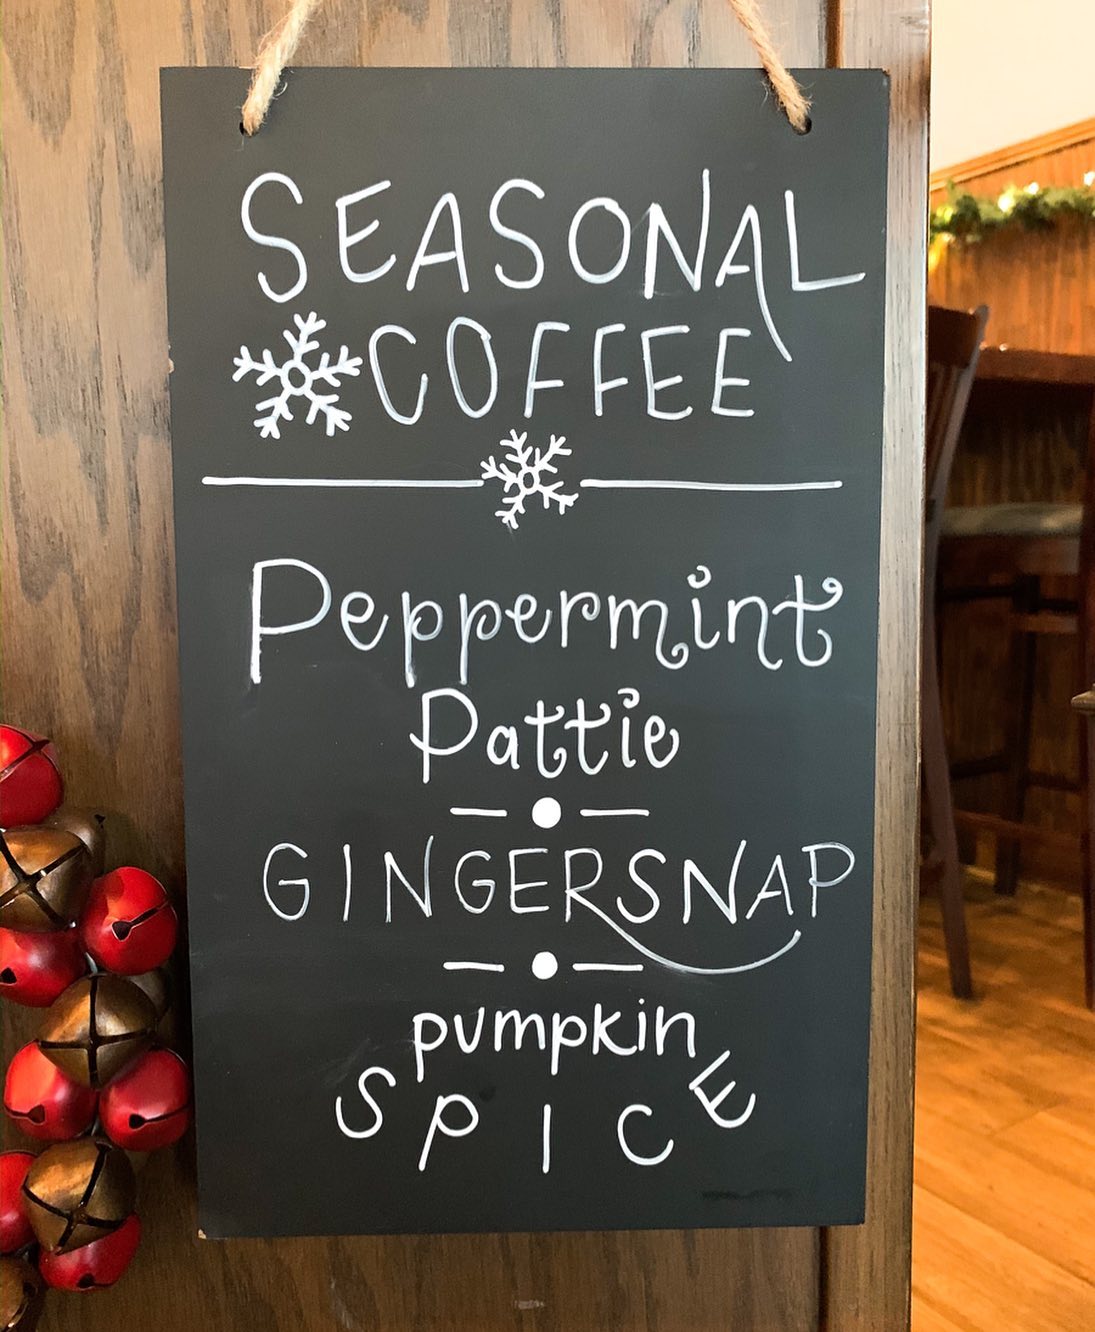 SEASONAL
COFFEE
Peppermint
Pattie
GINGERSNAP
pumpkin
SPICE